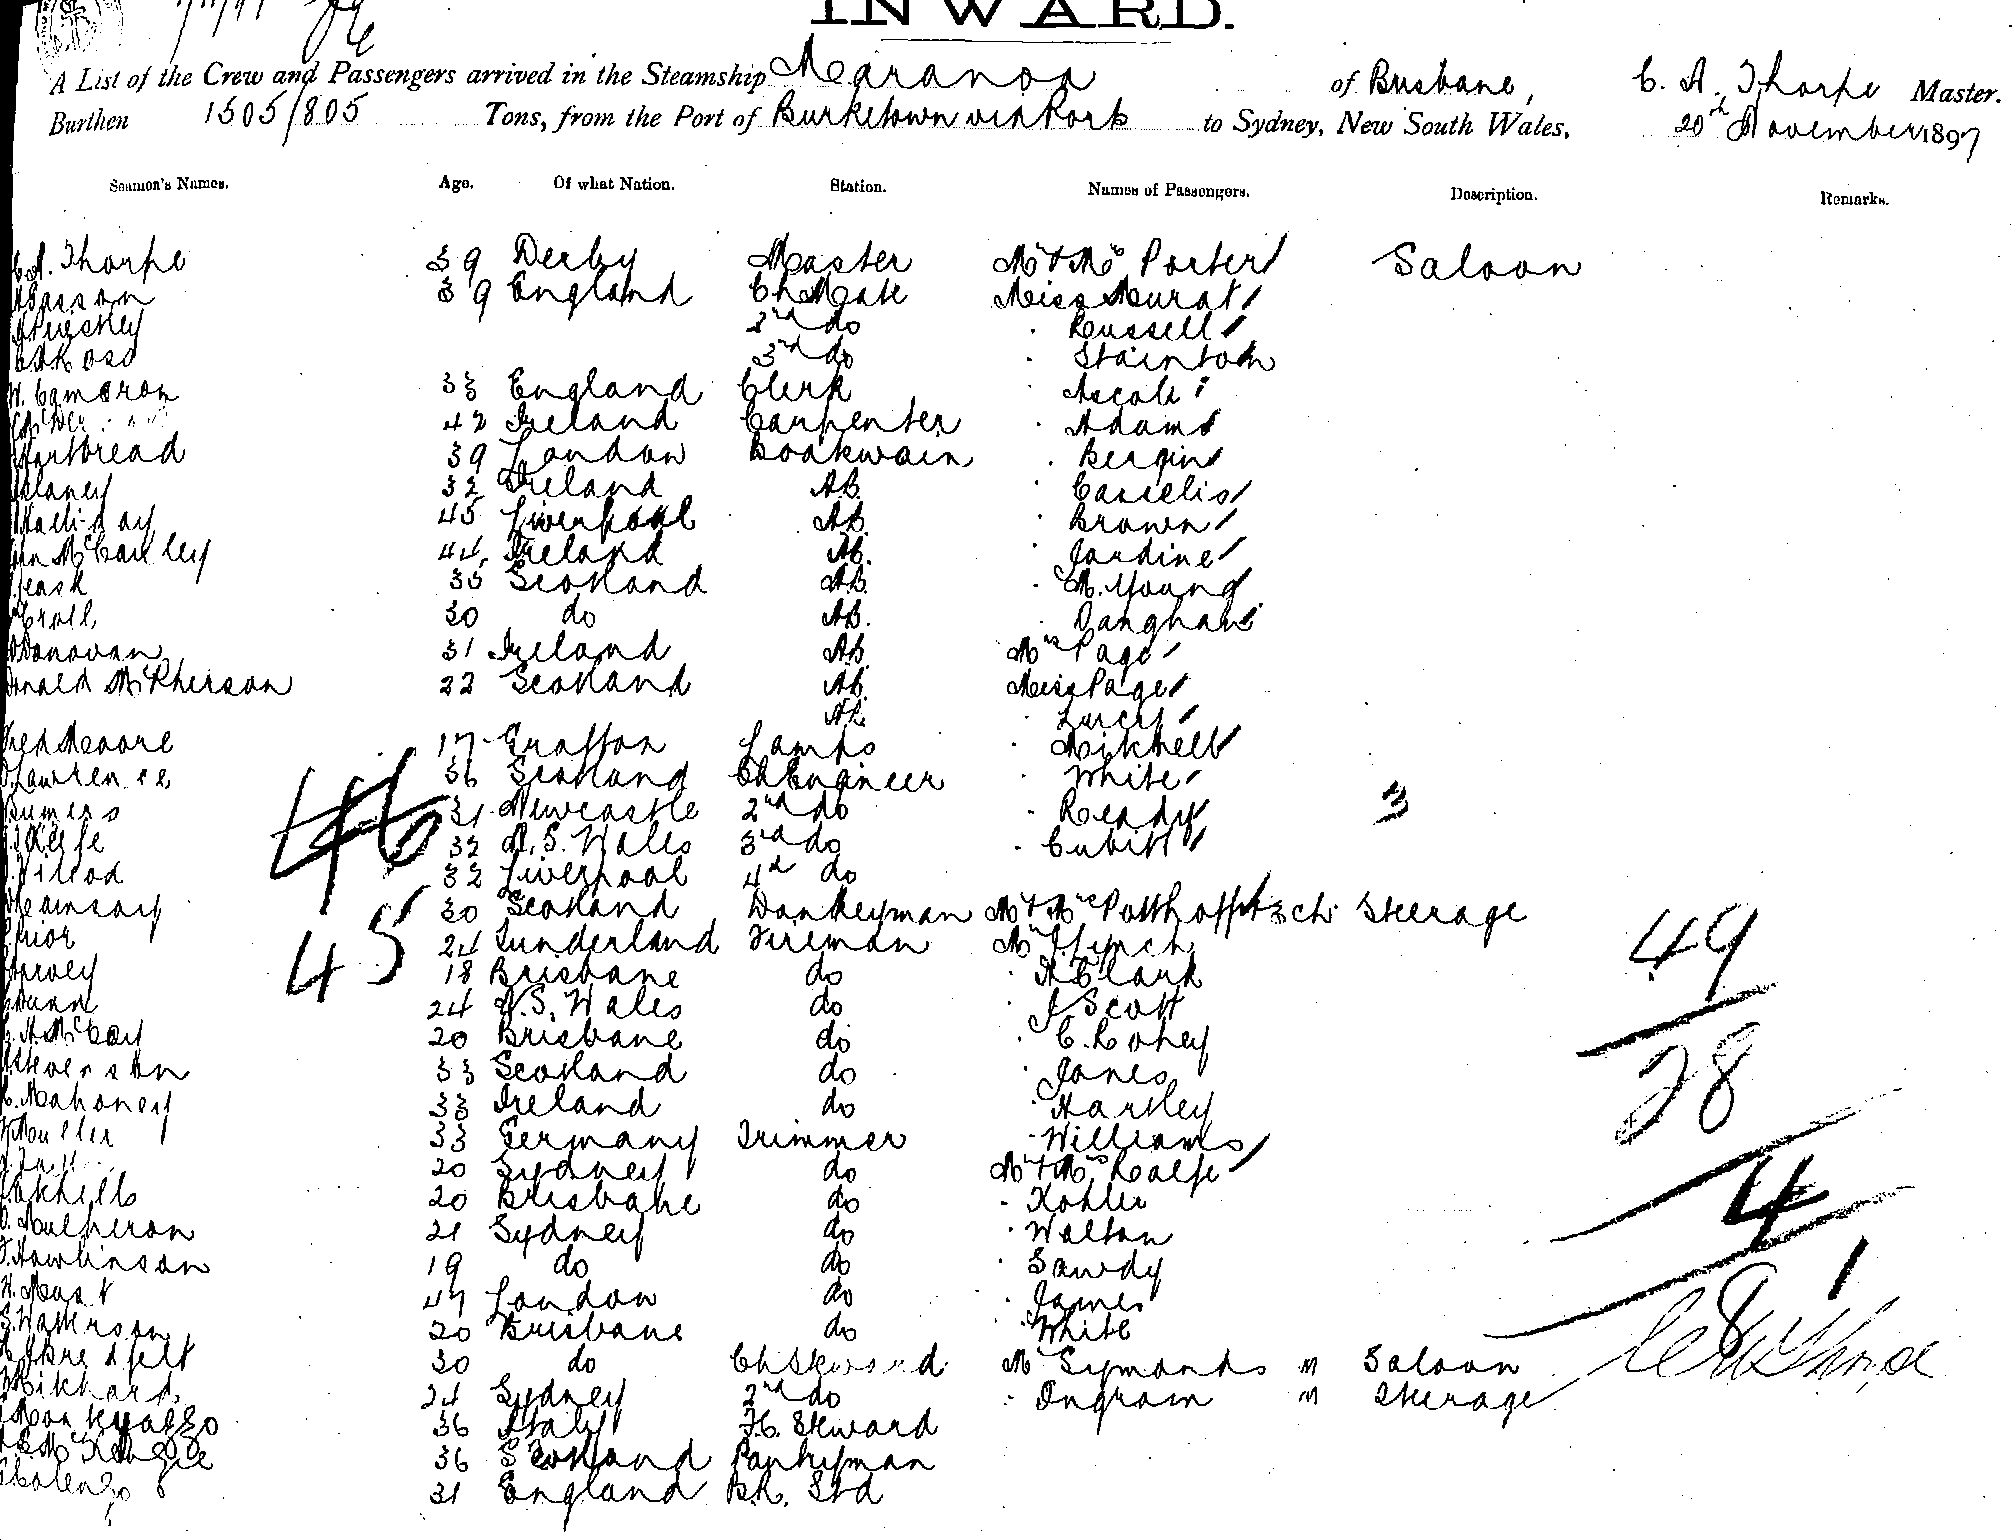 INWARD.
A List of the Crew and Passengers arrived in the Steamship Maranoa of Brisbane, C. A. Thorpe Master.
Burthen 1505/805 Tons, from the Port of Burketown via Ports to Sydney, New South Wales, 20th November 1897
Seamen's Names. Age. Of what Nation. Station. Names of Passengers. Description. Remarks.
C A. Thorpe 39 Derby Master Mr & Mrs Porter Saloon
39 England Ch Mate Miss Murat
2nd do " Russell
3rd do " Stainton
W. Cameron 33 England Clerk " Ascoli
42 Ireland Carpenter " Adams
Shortbread 39 London Boatswain " Bergin
Delaney 32 Ireland AB. " Casselis
45 Liverpool AB. " Brown
McCauley 44 Ireland AB. " Jardine
35 Scotland AB. " A. Young
30 do AB. " Vaughan
Donovan 31 Ireland AB. Mrs Page
Donald McPherson 22 Scotland AB. Miss Page
AB. "
Fred Moore 17 Grafton Lamps " Mitchell
Lawrence 36 Scotland Ch Engineer " White
31 Newcastle 2nd do " Ready 3
O'Keefe 32 N. S. Wales 3rd do " Cubitt
46
32 Liverpool 4th do
Ramsay 30 Scotland Donkeyman Mr & Mrs Steerage
Prior 24 Sunderland Fireman Mr J Lynch
45 49
Harvey 18 Brisbane do " H Clark
Dunn 24 N.S. Wales do " J Scott
A McCoy 20 Brisbane do " C. Cohey
Stevenson 33 Scotland do " Jones
28
C. Mahoney 33 Ireland do " Hartley
Mouller 33 Germany Trimmer " Williams
20 Sydney do Mr & Mrs Rolfe
20 Brisbane do " Kohler
4
Mulheron 21 Sydney do " Walton
T. Rowlinson 19 do do " Sawdy
1
W. Mast 47 London do " James
S. Watterson 20 Brisbane do " White
8
30 do Ch Steward Mr Symonds " Saloon
Pitchard 24 Sydney 2nd do " Ingram " Steerage
C A Thorpe
36 Italy F.C. Steward
McKenzie 36 Scotland Pantryman
31 England Bk. Std